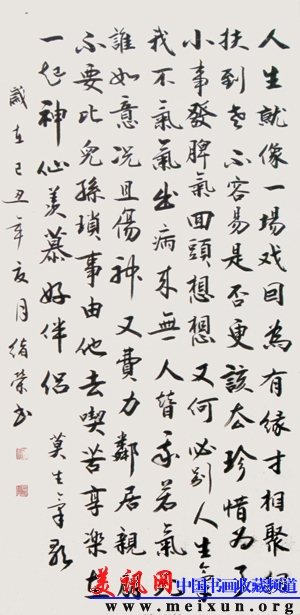 人生就像一場戏因為有缘才相聚相
扶到老不容易是否更該去珍惜为了
小事發脾氣回頭想想又何必别人生氣
我不氣氣出病来無人替我若氣死
誰如意况且傷神又費力鄰居親朋
不要比兒孫瑣事由他去喫苦享樂在
一起神仙羡慕好伴侣 莫生氣歌
歲在己丑年亥月绪榮书
美讯网 中国书画收藏频道
www.meixun.org